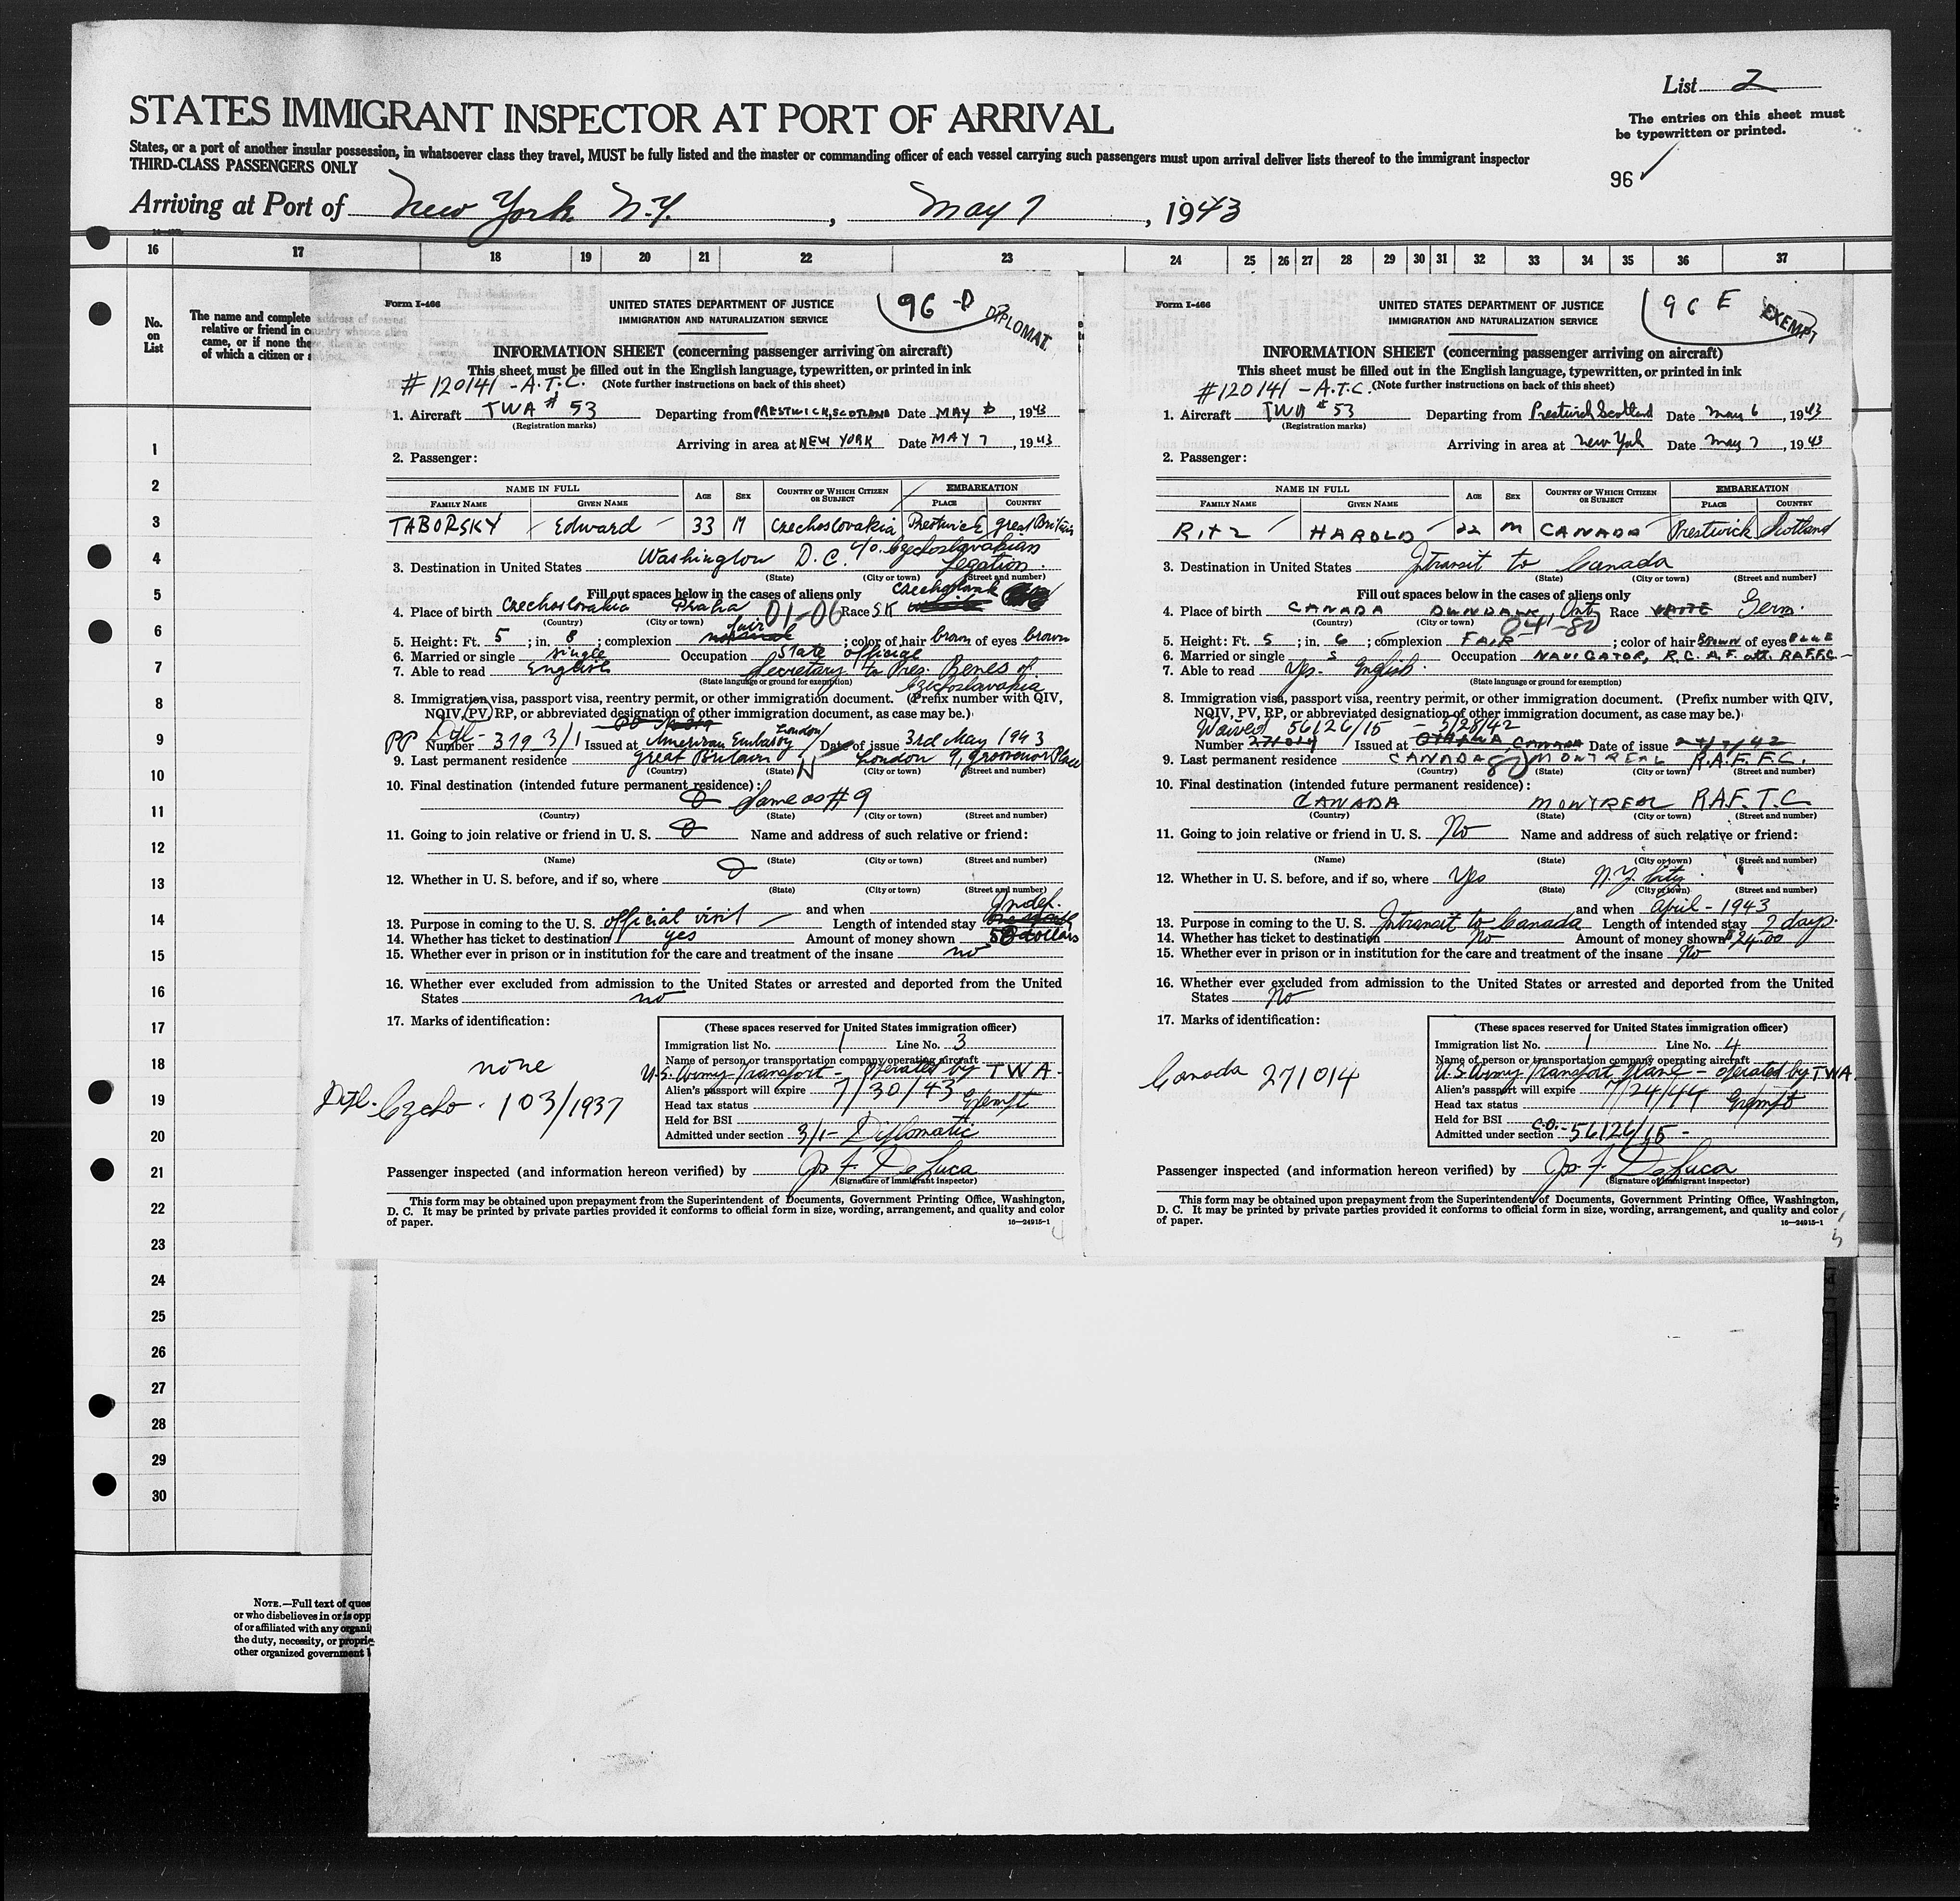 List 2
STATES IMMIGRANT INSPECTOR AT PORT OF ARRIVAL
The entries on this sheet must
be typewritten or printed.
States, or a port of another insular possession, in whatsoever class they travel, MUST be fully listed and the master or commanding officer of each vessel carrying such passengers must upon arrival deliver lists thereof to the immigrant inspector
THIRD-CLASS PASSENGERS ONLY
96
Arriving at Port of New York N.Y., May 7, 1943
16 17 18 19 20 21 22 23 24 25 26 27 28 29 30 31 32 33 34 35 36 37
No. on List
The name and complete
relative or friend in
came, or if none the
of which a citizen or
1
2
3
4
5
6
7
8
9
10
11
12
13
14
15
16
17
18
19
20
21
22
23
24
25
26
27
28
29
30
NOTE.—Full text of ques
or who disbelieves in or is opp
of or affiliated with any organi
the duty, necessity, or proprie
other organized government
Form I-466
UNITED STATES DEPARTMENT OF JUSTICE
IMMIGRATION AND NATURALIZATION SERVICE
96 -D
DIPLOMAT.
INFORMATION SHEET (concerning passenger arriving on aircraft)
This sheet must be filled out in the English language, typewritten, or printed in ink
#120141 - A.T.C. (Note further instructions on back of this sheet)
1. Aircraft TWA # 53 Departing from PRESTWICK, SCOTLAND Date MAY 6, 1943
(Registration marks)
Arriving in area at NEW YORK Date MAY 7, 1943
2. Passenger:
NAME IN FULL AGE SEX COUNTRY OF WHICH CITIZEN OR SUBJECT EMBARKATION
FAMILY NAME GIVEN NAME PLACE COUNTRY
TABORSKY Edward 33 M Czechoslovakia Prestwick great Britain
3. Destination in United States Washington D.C. c/o. Czechoslovakian Legation.
(State) (City or town) (Street and number)
Fill out spaces below in the cases of aliens only
4. Place of birth Czechoslovakia Praha 01-06 Race SK
(Country) (City or town)
5. Height: Ft. 5; in. 8; complexion fair; color of hair brown of eyes brown
6. Married or single single Occupation State official
7. Able to read English Secretary to Pres. Benes of Czechoslovakia
(State language or ground for exemption)
8. Immigration visa, passport visa, reentry permit, or other immigration document. (Prefix number with QIV,
NQIV, PV, RP, or abbreviated designation of other immigration document, as case may be.)
PP Dpl- Number 319 3/1 Issued at American Embassy London Date of issue 3rd May 1943
9. Last permanent residence great Britain London 9, Grosvenor Place
(Country) (State) (City or town) (Street and number)
10. Final destination (intended future permanent residence):
Same as # 9
(Country) (State) (City or town) (Street and number)
11. Going to join relative or friend in U. S. Name and address of such relative or friend:
(Name) (State) (City or town) (Street and number)
12. Whether in U. S. before, and if so, where
(State) (City or town) (Street and number)
and when
13. Purpose in coming to the U. S. official visit Length of intended stay Indef.
14. Whether has ticket to destination yes Amount of money shown 50 dollars
15. Whether ever in prison or in institution for the care and treatment of the insane no
16. Whether ever excluded from admission to the United States or arrested and deported from the United
States no
17. Marks of identification:
none
Dpl. Czecho. 103/1937
(These spaces reserved for United States immigration officer)
Immigration list No. 1 Line No. 3
Name of person or transportation company operating aircraft
U.S. Army Transport - operated by TWA.
Alien's passport will expire 7/30/43
Head tax status Exempt
Held for BSI
Admitted under section 3/1- Diplomatic
Passenger inspected (and information hereon verified) by Jos F. DeLuca
(Signature of immigrant inspector)
This form may be obtained upon prepayment from the Superintendent of Documents, Government Printing Office, Washington,
D. C. It may be printed by private parties provided it conforms to official form in size, wording, arrangement, and quality and color
of paper.
16—24915-1
4
Form I-466
UNITED STATES DEPARTMENT OF JUSTICE
IMMIGRATION AND NATURALIZATION SERVICE
96 E
EXEMPT
INFORMATION SHEET (concerning passenger arriving on aircraft)
This sheet must be filled out in the English language, typewritten, or printed in ink
#120141 - A.T.C. (Note further instructions on back of this sheet)
1. Aircraft TWA # 53 Departing from Prestwick Scotland Date May 6, 1943
(Registration marks)
Arriving in area at New York Date May 7, 1943
2. Passenger:
NAME IN FULL AGE SEX COUNTRY OF WHICH CITIZEN OR SUBJECT EMBARKATION
FAMILY NAME GIVEN NAME PLACE COUNTRY
RITZ HAROLD 22 M CANADA Prestwick Scotland
3. Destination in United States Intransit to Canada
(State) (City or town) (Street and number)
Fill out spaces below in the cases of aliens only
4. Place of birth CANADA DUNDALK, Ont 04-80 Race WHITE Germ.
(Country) (City or town)
5. Height: Ft. 5; in. 6; complexion FAIR; color of hair BROWN of eyes BLUE
6. Married or single S Occupation NAVIGATOR, R.C.A.F. att. RAF.F.C.
7. Able to read Yes- English
(State language or ground for exemption)
8. Immigration visa, passport visa, reentry permit, or other immigration document. (Prefix number with QIV,
NQIV, PV, RP, or abbreviated designation of other immigration document, as case may be.)
Waived 56126/15 - 5/28/42
Number 271014 Issued at OTTAWA, CANADA Date of issue 24/7/42
9. Last permanent residence CANADA 80 MONTREAL R.A.F. F.C.
(Country) (State) (City or town) (Street and number)
10. Final destination (intended future permanent residence):
CANADA MONTREAL RAF. T.C
(Country) (State) (City or town) (Street and number)
11. Going to join relative or friend in U. S. No Name and address of such relative or friend:
(Name) (State) (City or town) (Street and number)
12. Whether in U. S. before, and if so, where Yes N.Y. City
(State) (City or town) (Street and number)
and when April - 1943
13. Purpose in coming to the U. S. Intransit to Canada Length of intended stay 2 days.
14. Whether has ticket to destination No Amount of money shown $24.00
15. Whether ever in prison or in institution for the care and treatment of the insane No
16. Whether ever excluded from admission to the United States or arrested and deported from the United
States No
17. Marks of identification:
Canada 271014
(These spaces reserved for United States immigration officer)
Immigration list No. 1 Line No. 4
Name of person or transportation company operating aircraft
U.S. Army Transport Plane - operated by TWA.
Alien's passport will expire 7/24/44
Head tax status Exempt
Held for BSI
Admitted under section C.O.- 56126/15 -
Passenger inspected (and information hereon verified) by Jos F. DeLuca
(Signature of immigrant inspector)
This form may be obtained upon prepayment from the Superintendent of Documents, Government Printing Office, Washington,
D. C. It may be printed by private parties provided it conforms to official form in size, wording, arrangement, and quality and color
of paper.
16—24915-1
5